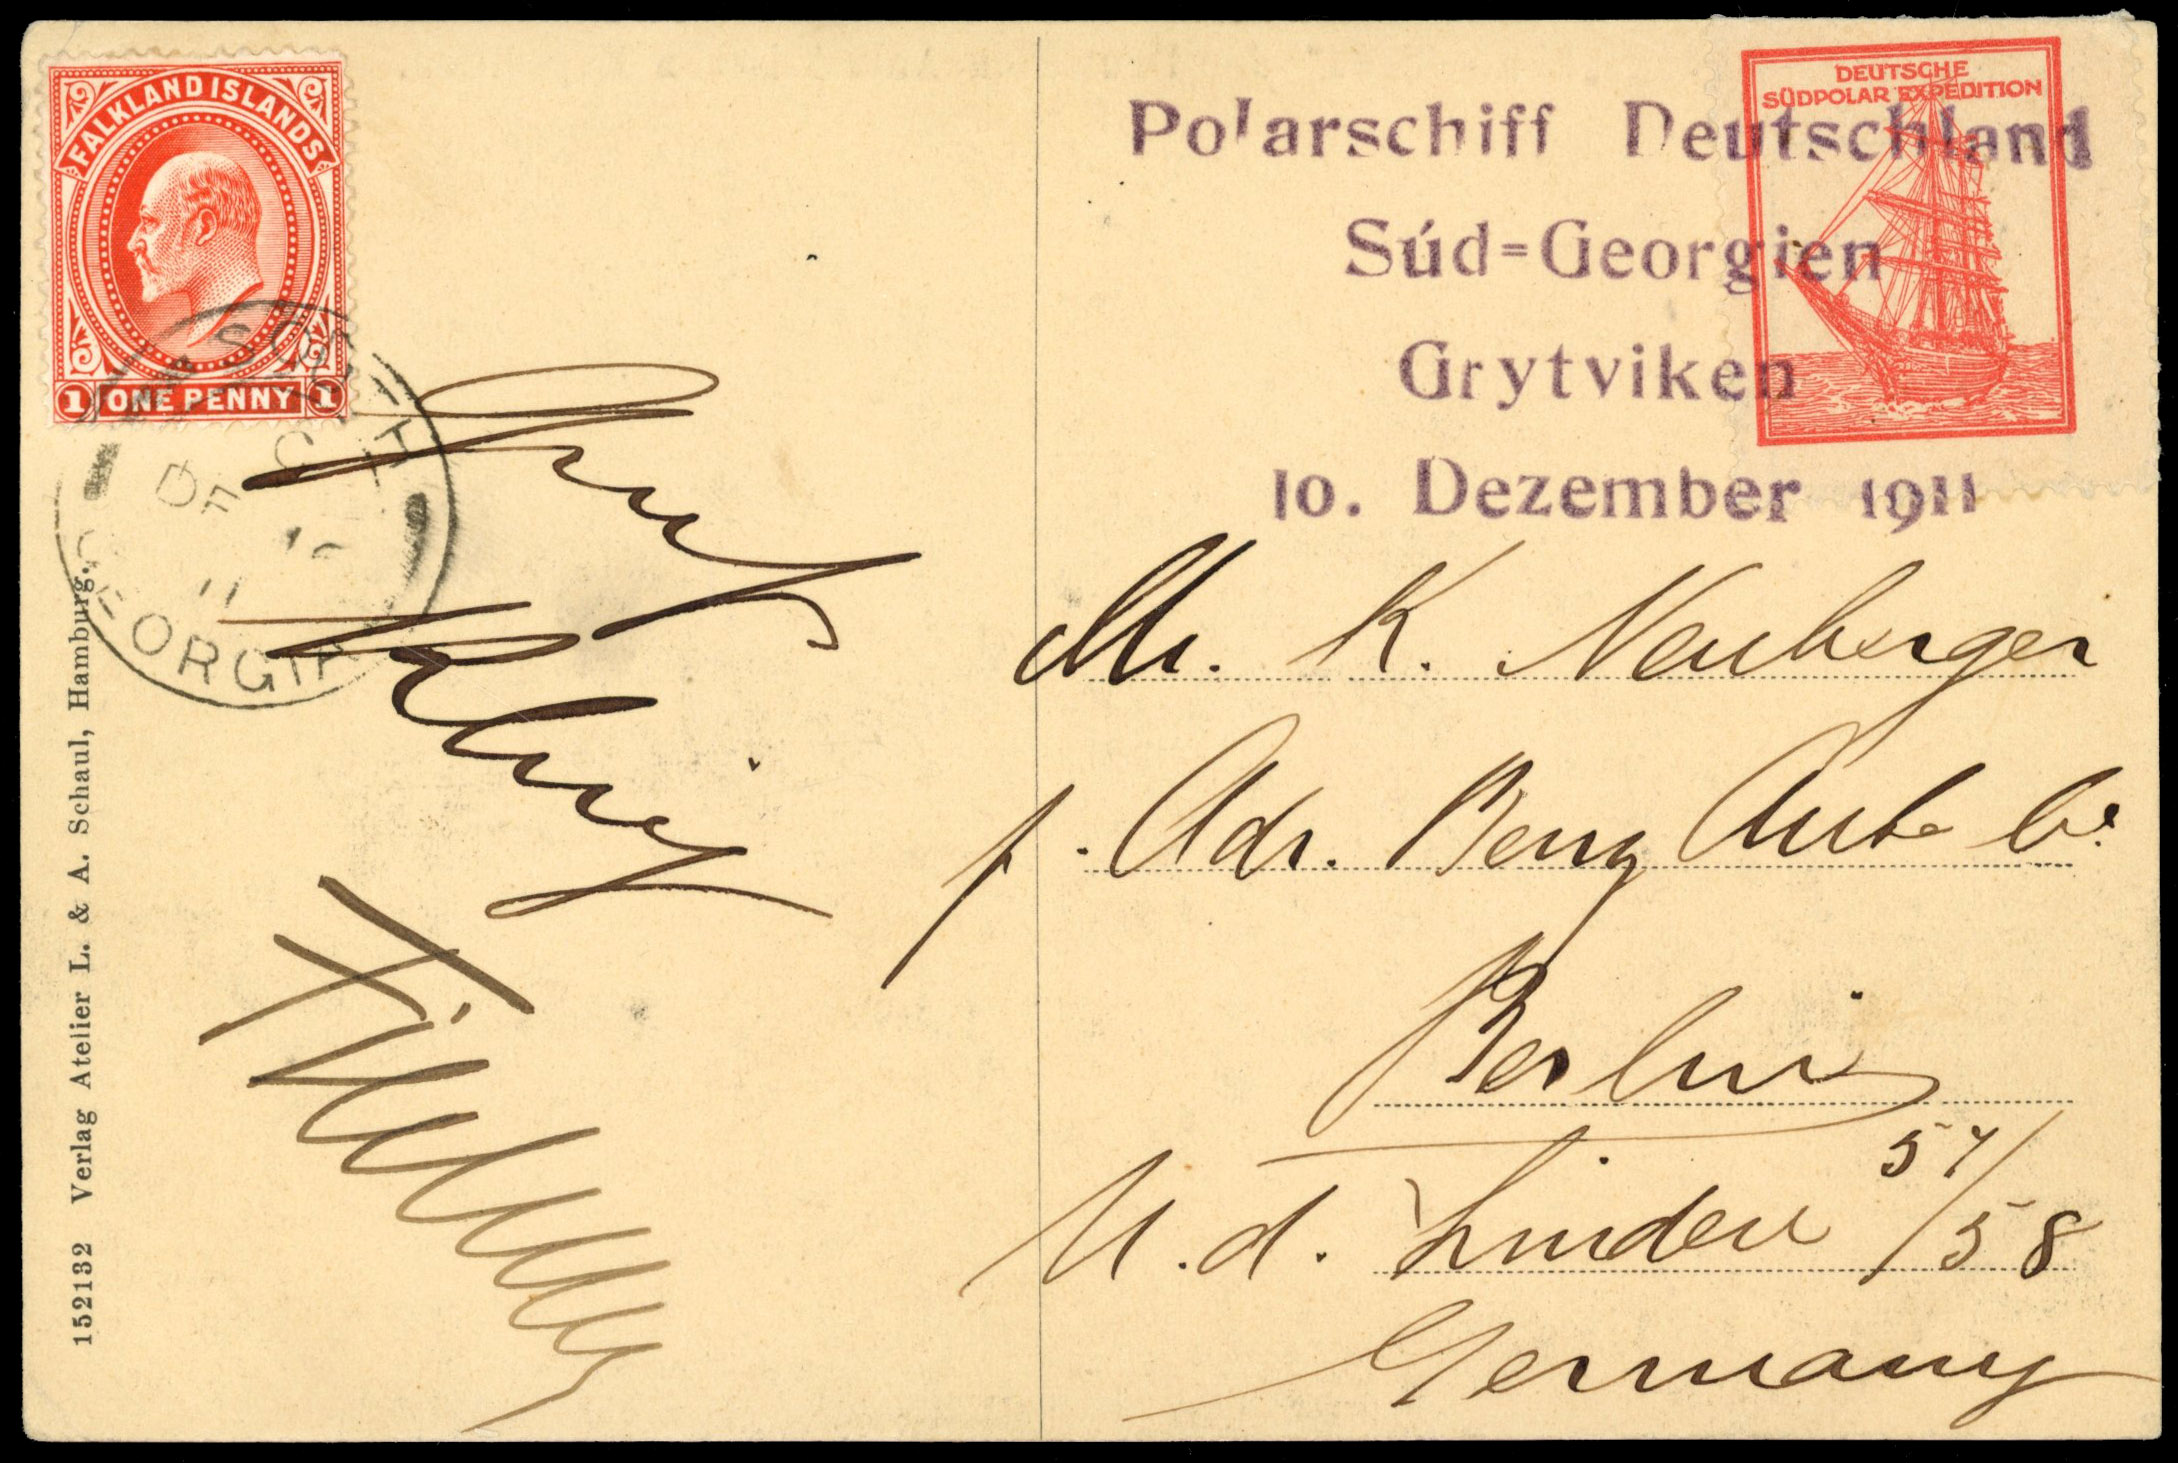 FALKLAND ISLANDS
1 ONE PENNY 1
SOUTH
DE 10
11
GEORGIA
DEUTSCHE
SÜDPOLAR EXPEDITION
Polarschiff Deutschland
Süd=Georgien
Grytviken
10. Dezember 1911
Gruß
Mr. K. Neuberger
p. Adr. Benz Auto
Berlin
U. d. Linden 57/58
Germany
152132 Verlag Atelier L. & A. Schaul, Hamburg.